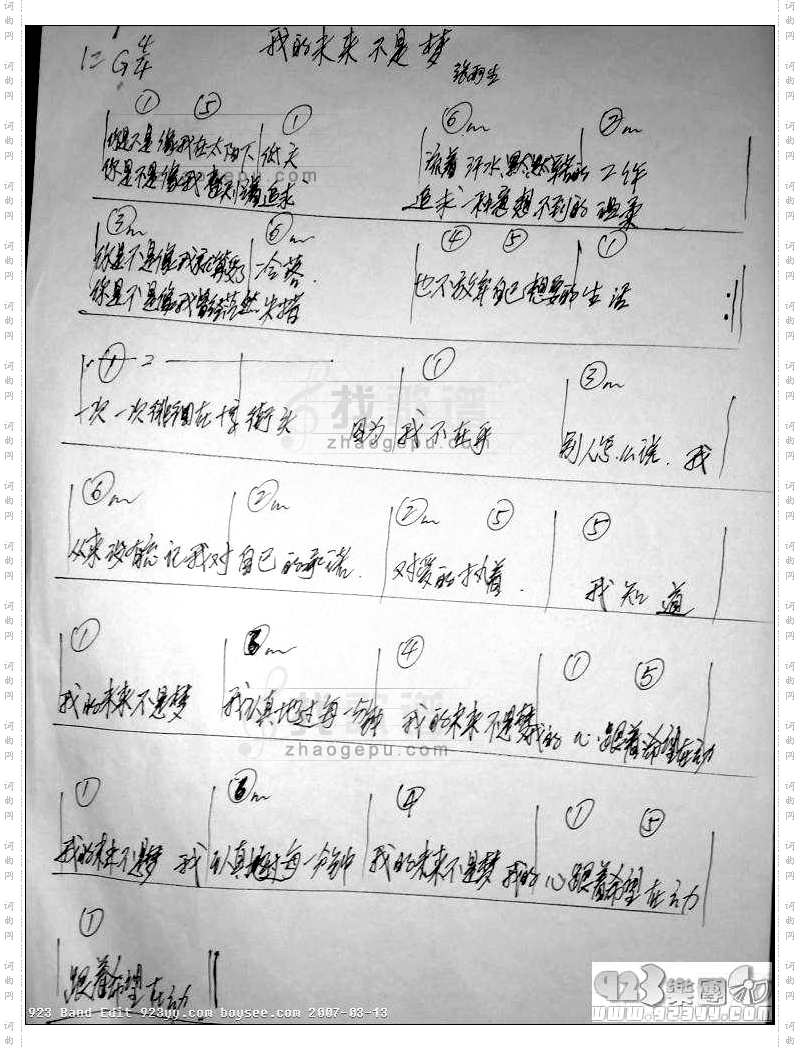 我的未来不是梦
1=G 4/4
张雨生
① ⑤ ① ⑥m ②m
你是不是像我在太阳下低头 流着汗水默默辛苦的工作
你是不是像我整天忙着追求 追求一种意想不到的温柔
③m ⑥m ④ ⑤ ①
你是不是像我就算受了冷落 也不放弃自己想要的生活
你是不是像我曾经茫然失措
① ① ③m
一次一次徘徊在十字街头 因为我不在乎 别人怎么说 我
⑥m ②m ②m ⑤ ⑤
从来没有忘记我对自己的承诺 对爱的执着 我知道
① ③m ④ ① ⑤
我的未来不是梦 我认真地过每一分钟 我的未来不是梦 我的心跟着希望在动
① ③m ④ ① ⑤
我的未来不是梦 我认真地过每一分钟 我的未来不是梦 我的心跟着希望在动
①
跟着希望在动
找歌谱
zhaogepu.com
923 Band Edit 923yy.com boysee.com 2007-03-13
923樂團
www.923yy.com
词曲网